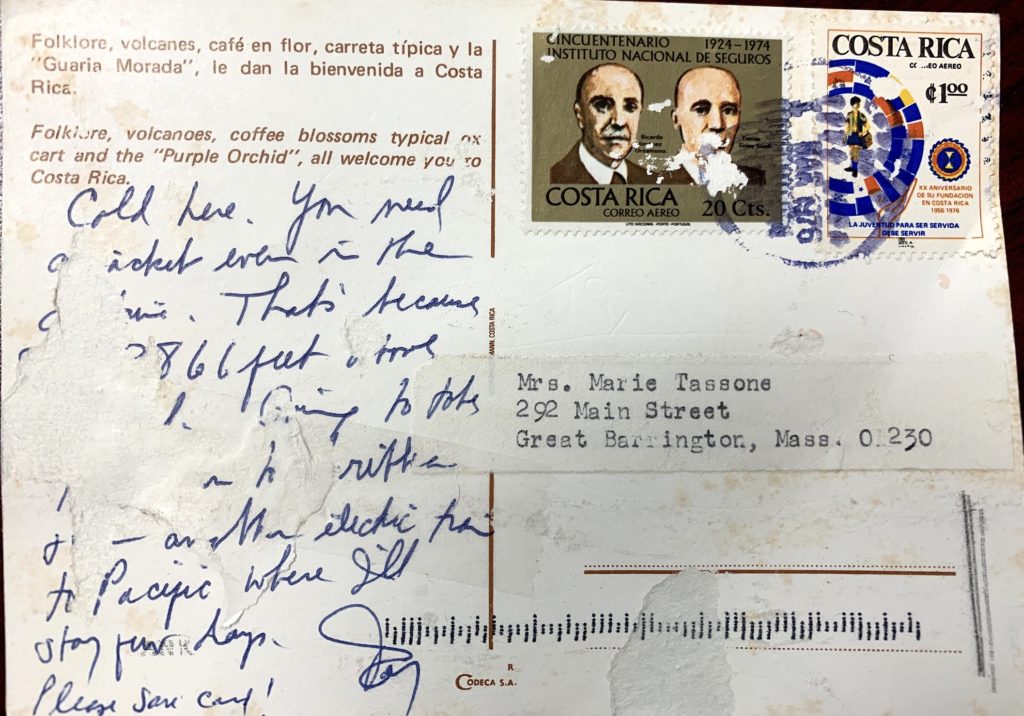 Folklore, volcanes, café en flor, carreta típica y la
"Guaria Morada", le dan la bienvenida a Costa
Rica.
Folklore, volcanoes, coffee blossoms typical ox
cart and the "Purple Orchid", all welcome you to
Costa Rica.
Cold here. You need
a jacket even in the
That's because
866 feet
Going to take
to
another electric train
to Pacific where I'll
stay few days.
Please save card!
CINCUENTENARIO 1924-1974
INSTITUTO NACIONAL DE SEGUROS
Ricardo
Tomás
COSTA RICA
CORREO AEREO 20 Cts.
LITO NACIONAL - PORTO - PORTUGAL
COSTA RICA
CORREO AEREO
₡1.00
XX ANIVERSARIO
DE SU FUNDACION
EN COSTA RICA
1956-1976
LA JUVENTUD PARA SER SERVIDA
DEBE SERVIR
COSTA RICA
Mrs. Marie Tassone
292 Main Street
Great Barrington, Mass. 01230
R
CODECA S.A.